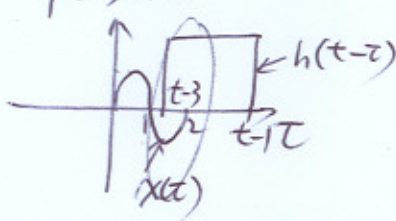 h(t-τ)
t-3
2
t-1 τ
x(τ)